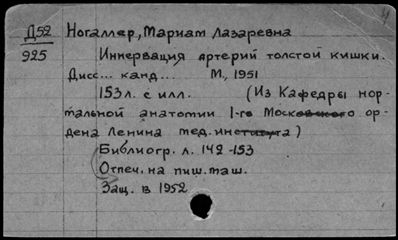 Д52 Ногаллер, Мариам Лазаревна
925 Иннервация артерий толстой кишки.
Дисс... канд... М., 1951
153 л. с илл. (Из Кафедры нор-
мальной анатомии 1-го Московского ор-
дена Ленина мед. института)
Библиогр. л. 142-153
Отпеч. на пиш. маш.
Защ. в 1952